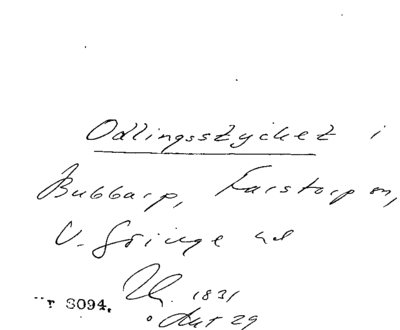 Odlingsstycket i
Bubbarp, Farstorp sn,
V. Göinge hd
1831
r 8094.
29